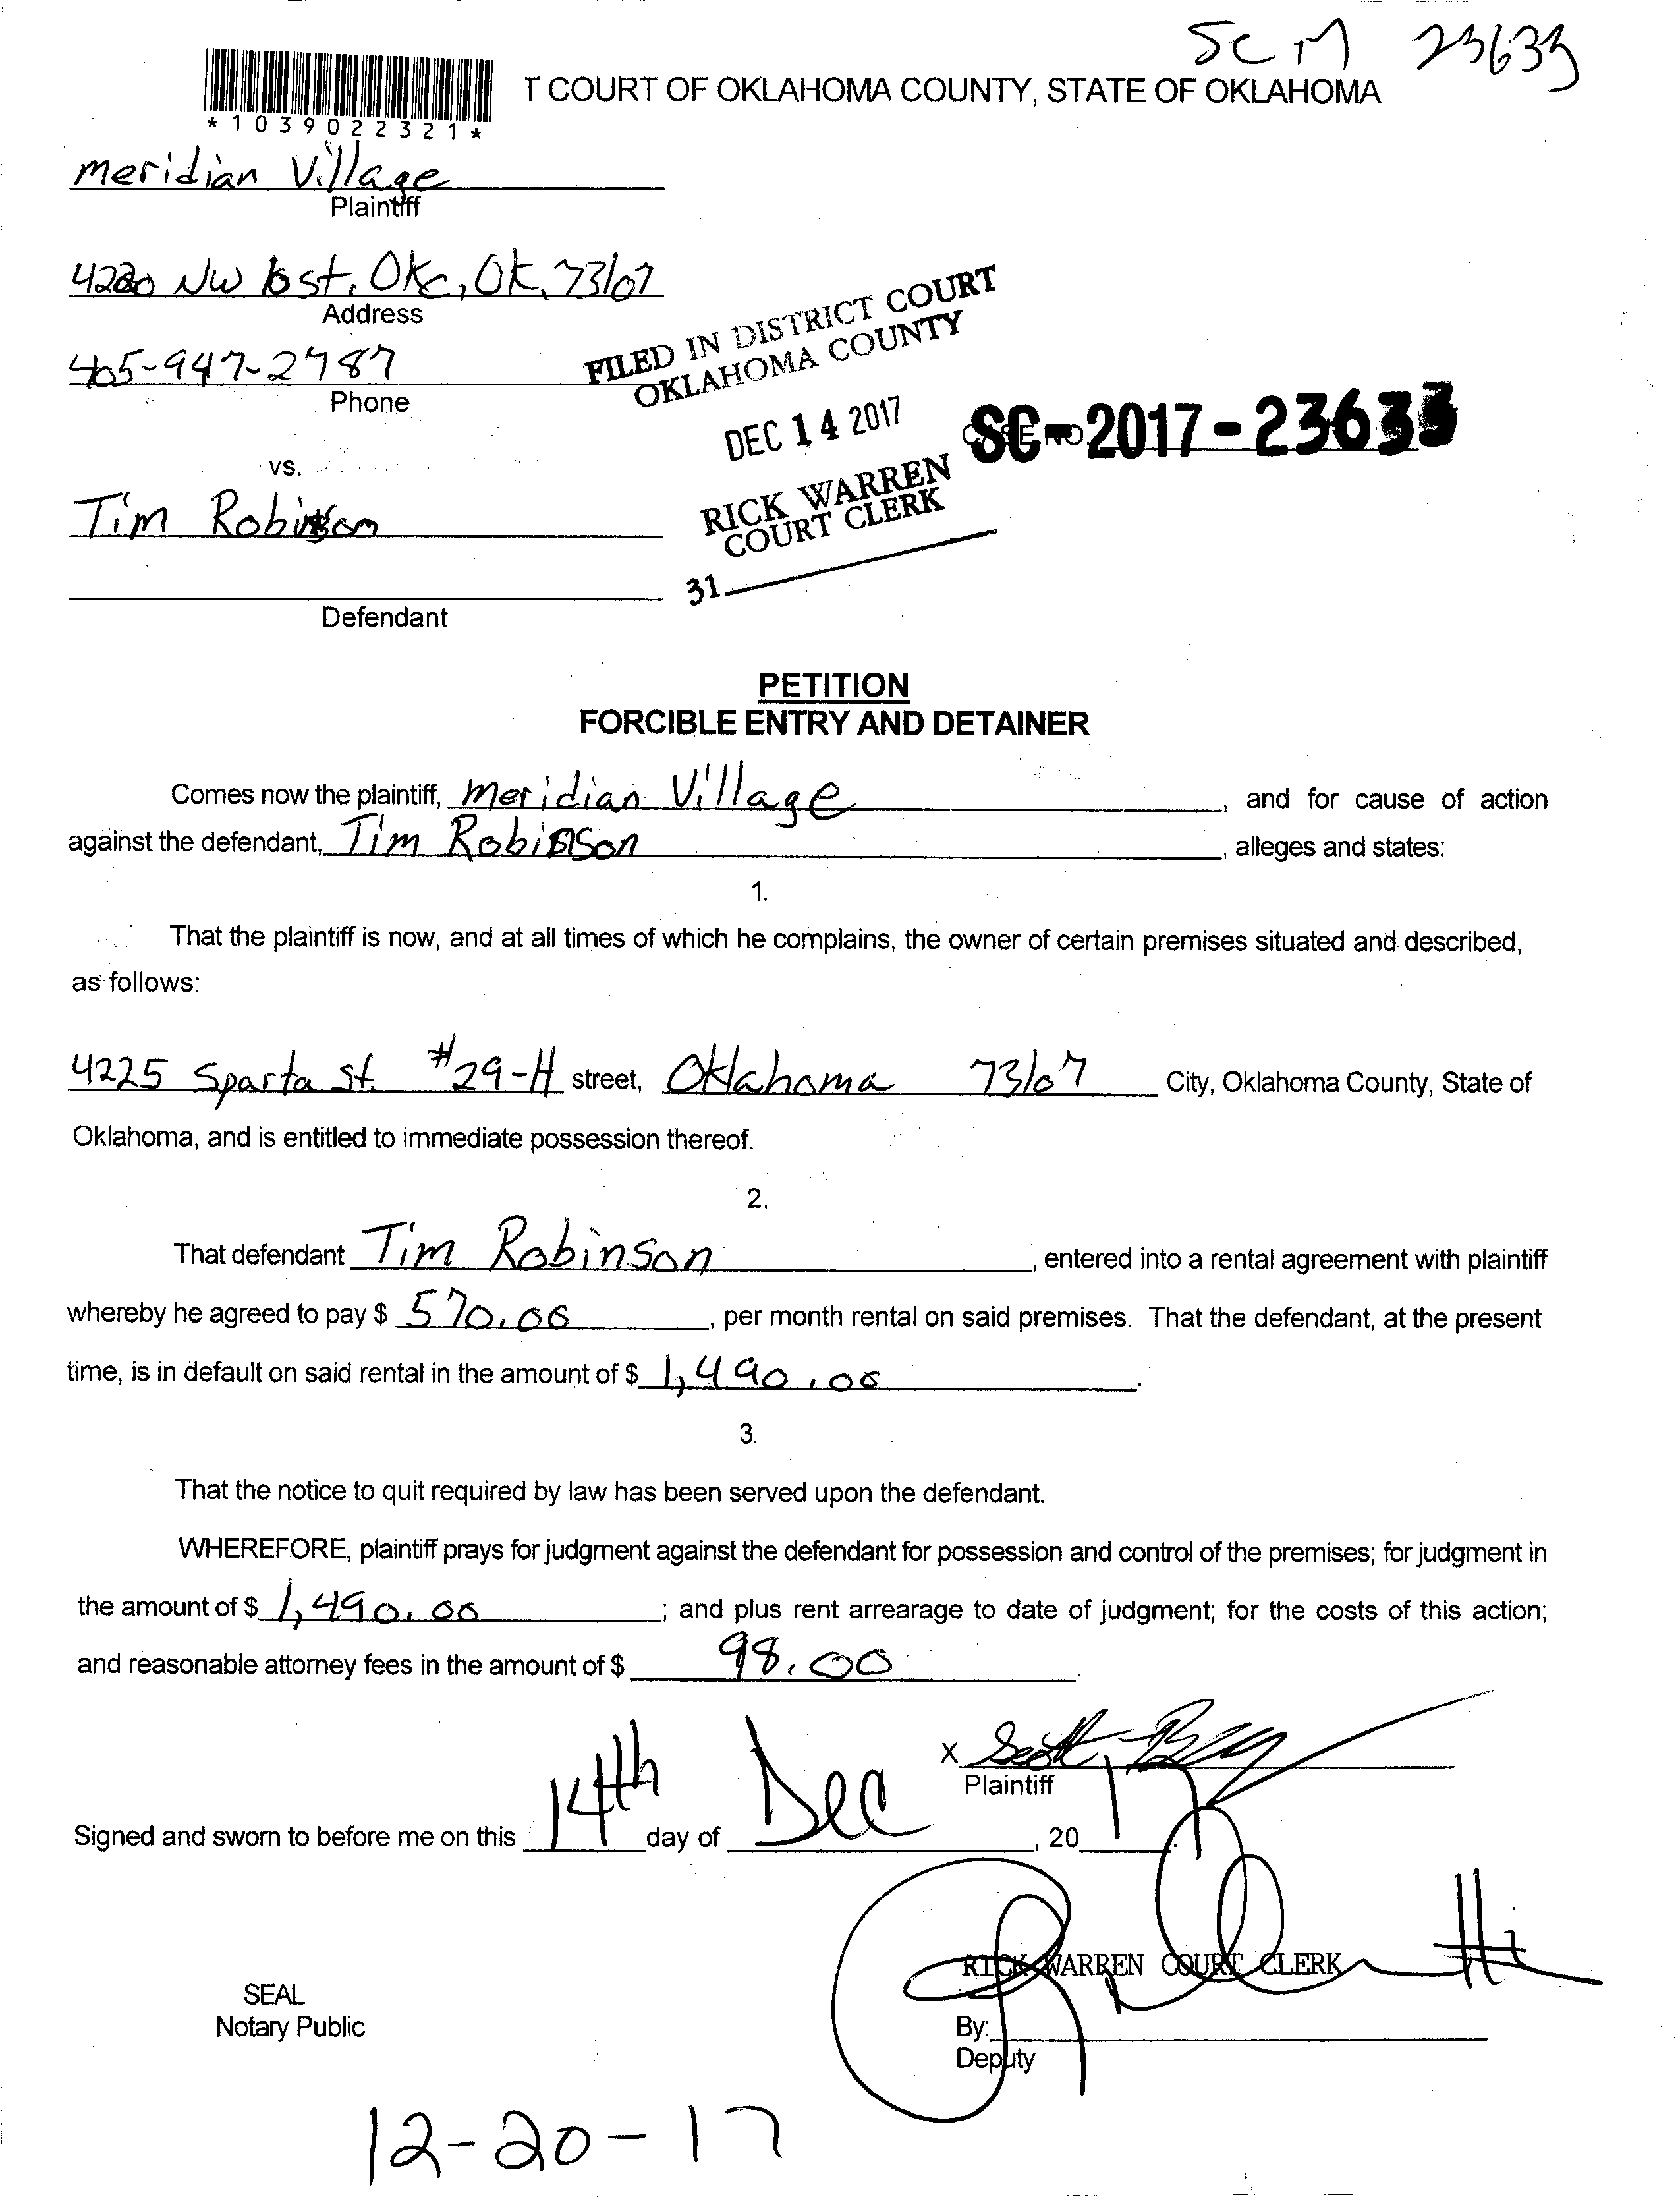 SC M 23633
T COURT OF OKLAHOMA COUNTY, STATE OF OKLAHOMA
*1039022321*
Meridian Village
Plaintiff
NW st. Okc, Ok, 73107
Address
405-947-2787
Phone
FILED IN DISTRICT COURT
OKLAHOMA COUNTY
DEC 14 2017
SC-2017-23633
RICK WARREN
COURT CLERK
31
vs.
Tim Robinson
Defendant
PETITION
FORCIBLE ENTRY AND DETAINER
Comes now the plaintiff, Meridian Village, and for cause of action
against the defendant, Tim Robinson, alleges and states:
1.
That the plaintiff is now, and at all times of which he complains, the owner of certain premises situated and described,
as follows:
4225 Sparta St. #29-H street, Oklahoma 73107 City, Oklahoma County, State of
Oklahoma, and is entitled to immediate possession thereof.
2.
That defendant Tim Robinson, entered into a rental agreement with plaintiff
whereby he agreed to pay $ 570.00, per month rental on said premises. That the defendant, at the present
time, is in default on said rental in the amount of $ 1,490.00.
3.
That the notice to quit required by law has been served upon the defendant.
WHEREFORE, plaintiff prays for judgment against the defendant for possession and control of the premises; for judgment in
the amount of $ 1,490.00; and plus rent arrearage to date of judgment; for the costs of this action;
and reasonable attorney fees in the amount of $ 98.00.
X Scott
Plaintiff
Signed and sworn to before me on this 14th day of Dec, 2017.
RICK WARREN COURT CLERK
SEAL
Notary Public
By:
Deputy
12-20-17